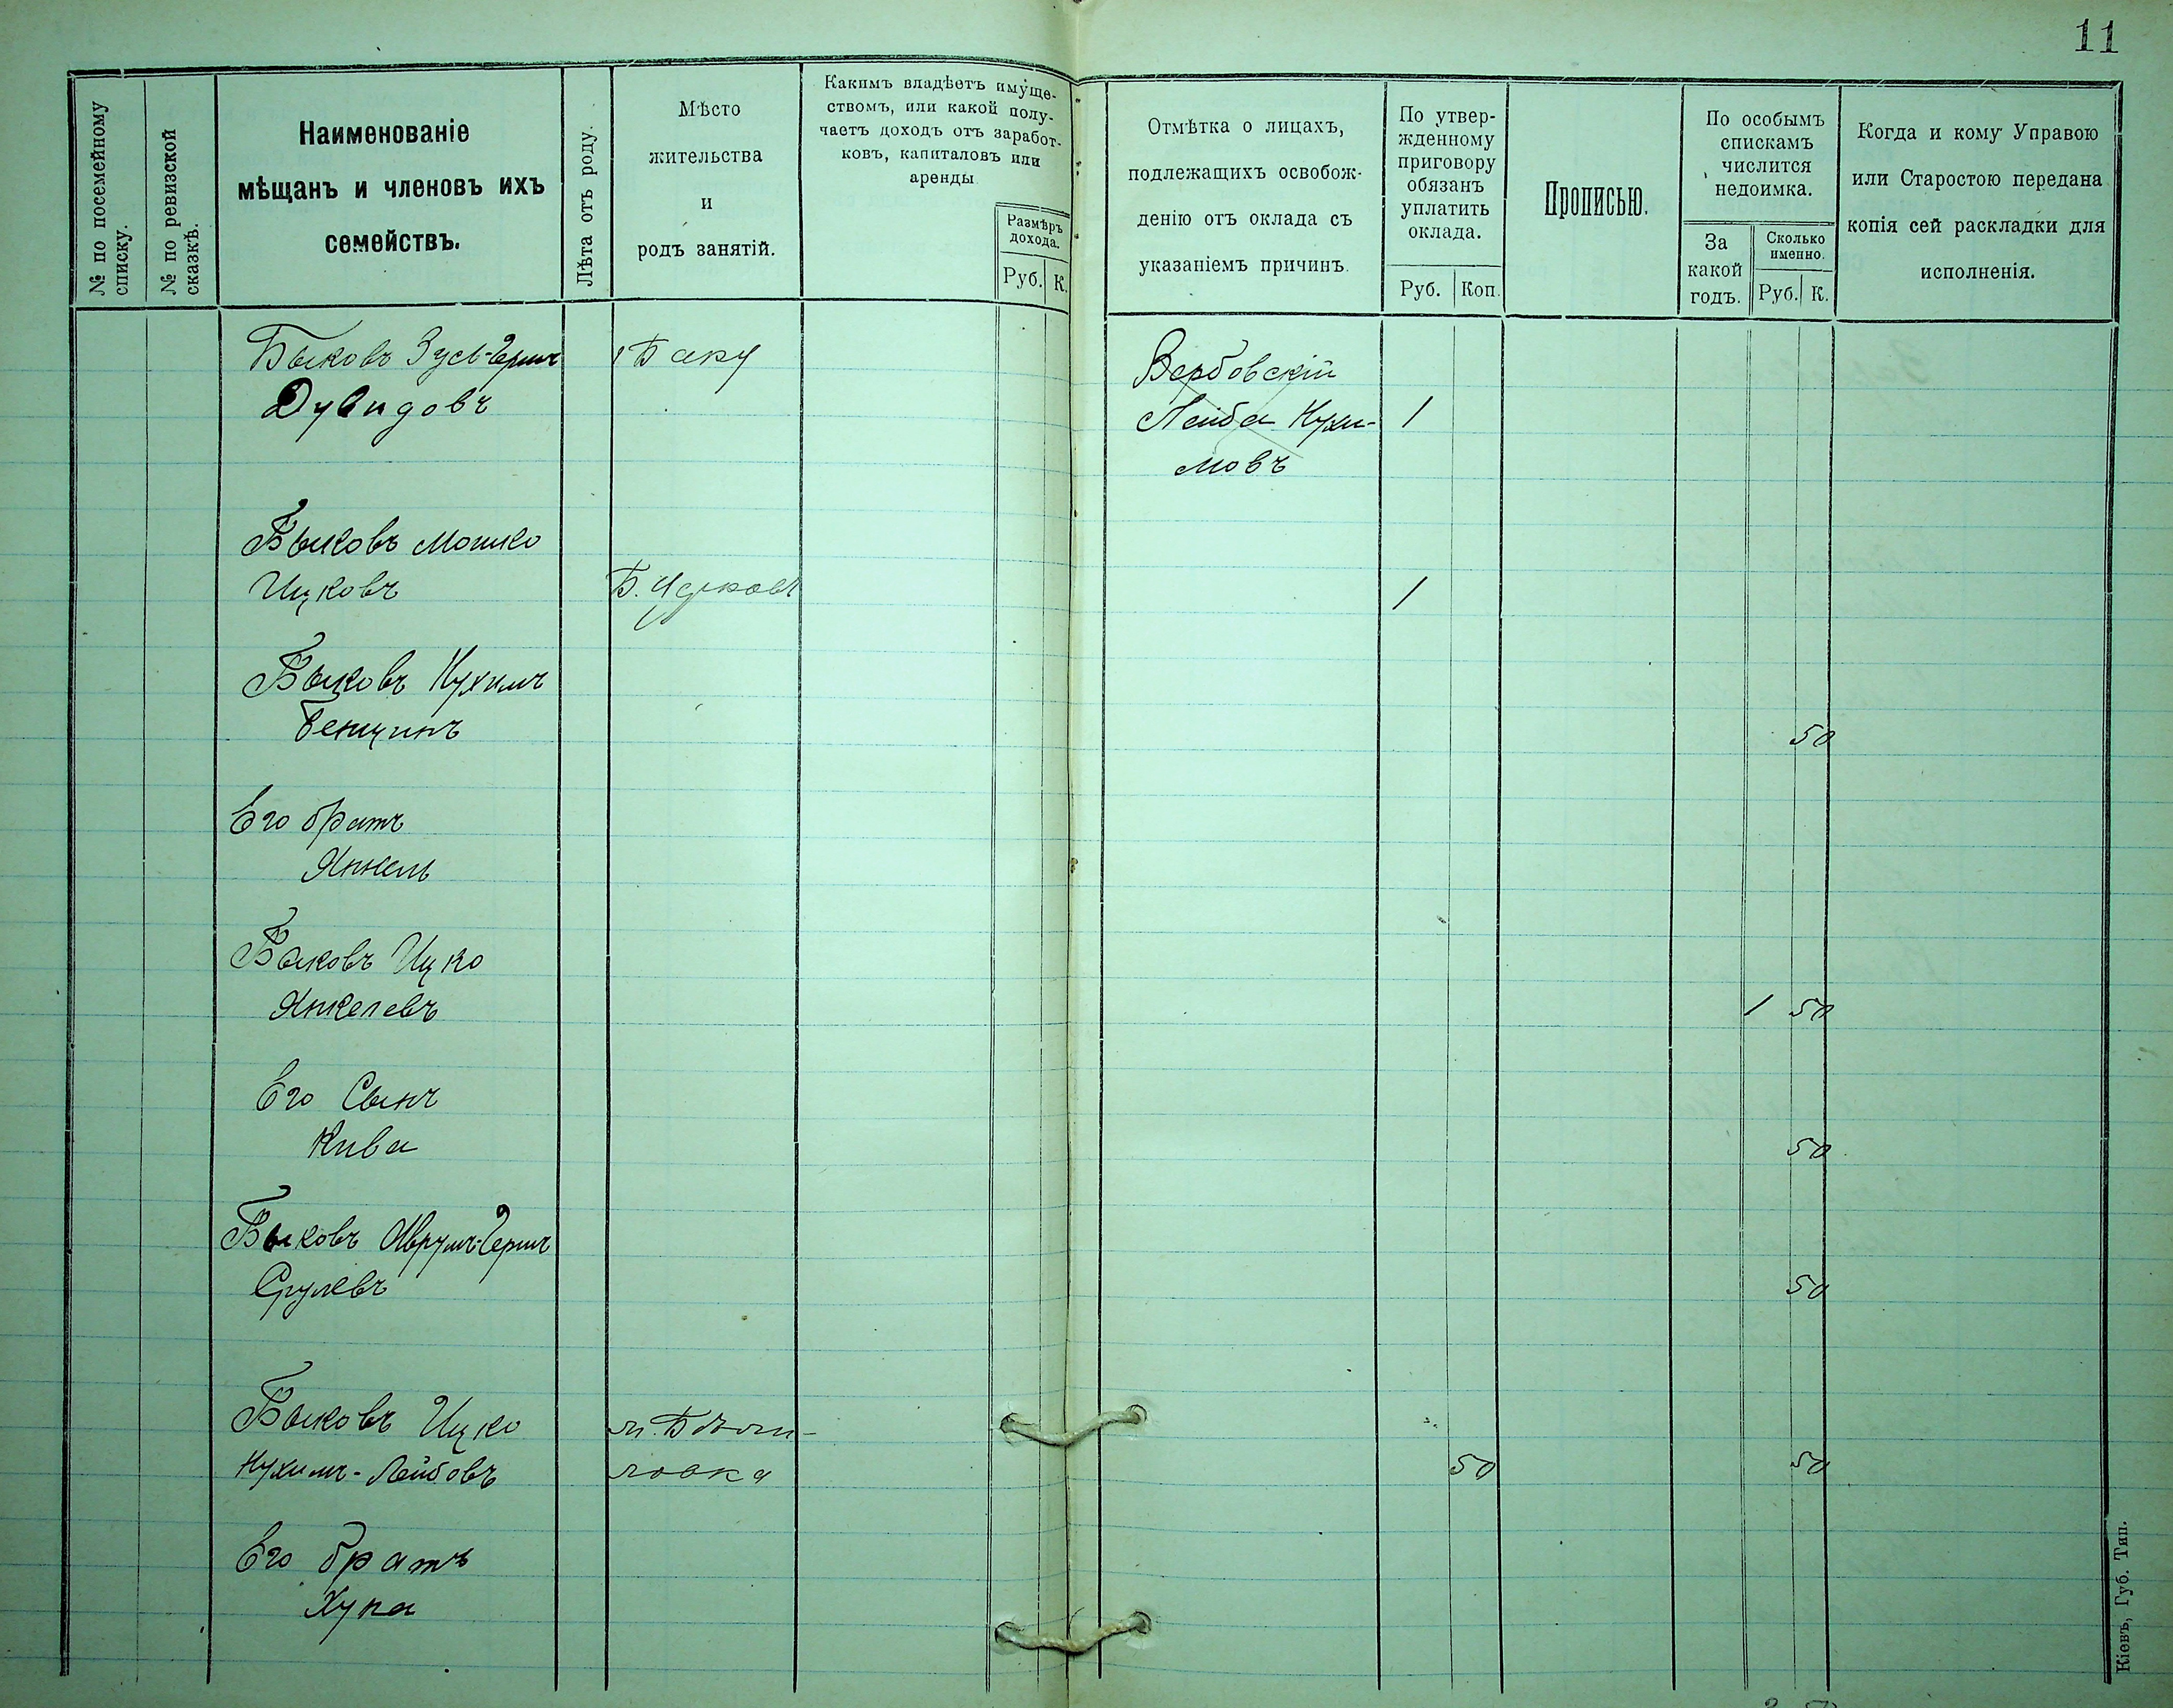 11
№ по посемейному
списку.
№ по ревизской
сказкѣ.
Наименованіе
мѣщанъ и членовъ ихъ
семействъ.
Лѣта отъ роду.
Мѣсто
жительства
и
родъ занятій.
Какимъ владѣетъ имуще-
ствомъ, или какой полу-
чаетъ доходъ отъ заработ-
ковъ, капиталовъ или
аренды
Размѣръ
дохода.
Руб. К.
Отмѣтка о лицахъ,
подлежащихъ освобож-
денію отъ оклада съ
указаніемъ причинъ.
По утвер-
жденному
приговору
обязанъ
уплатить
оклада.
Руб. Коп.
Прописью.
По особымъ
спискамъ
числится
недоимка.
За
какой
годъ.
Сколько
именно.
Руб. К.
Когда и кому Управою
или Старостою передана
копія сей раскладки для
исполненія.
Быковъ Зусь-Герш Баку Вербовскій
Дувидовъ Лейба Нухи- 1
мовъ
Быковъ Мошко
Ицковъ 1
Быковъ Нухимъ
Бенцинъ 50
Его братъ
Янкель
Быковъ Ицко
Янкелевъ 1 50
Его Сынъ
Кива 50
Быковъ Аврумъ-Герш
Срулевъ 50
Быковъ Ицко
Нухимъ-Лейбовъ ловка 50 50
Его братъ
Хуна
Кіевъ, Губ. Тип.